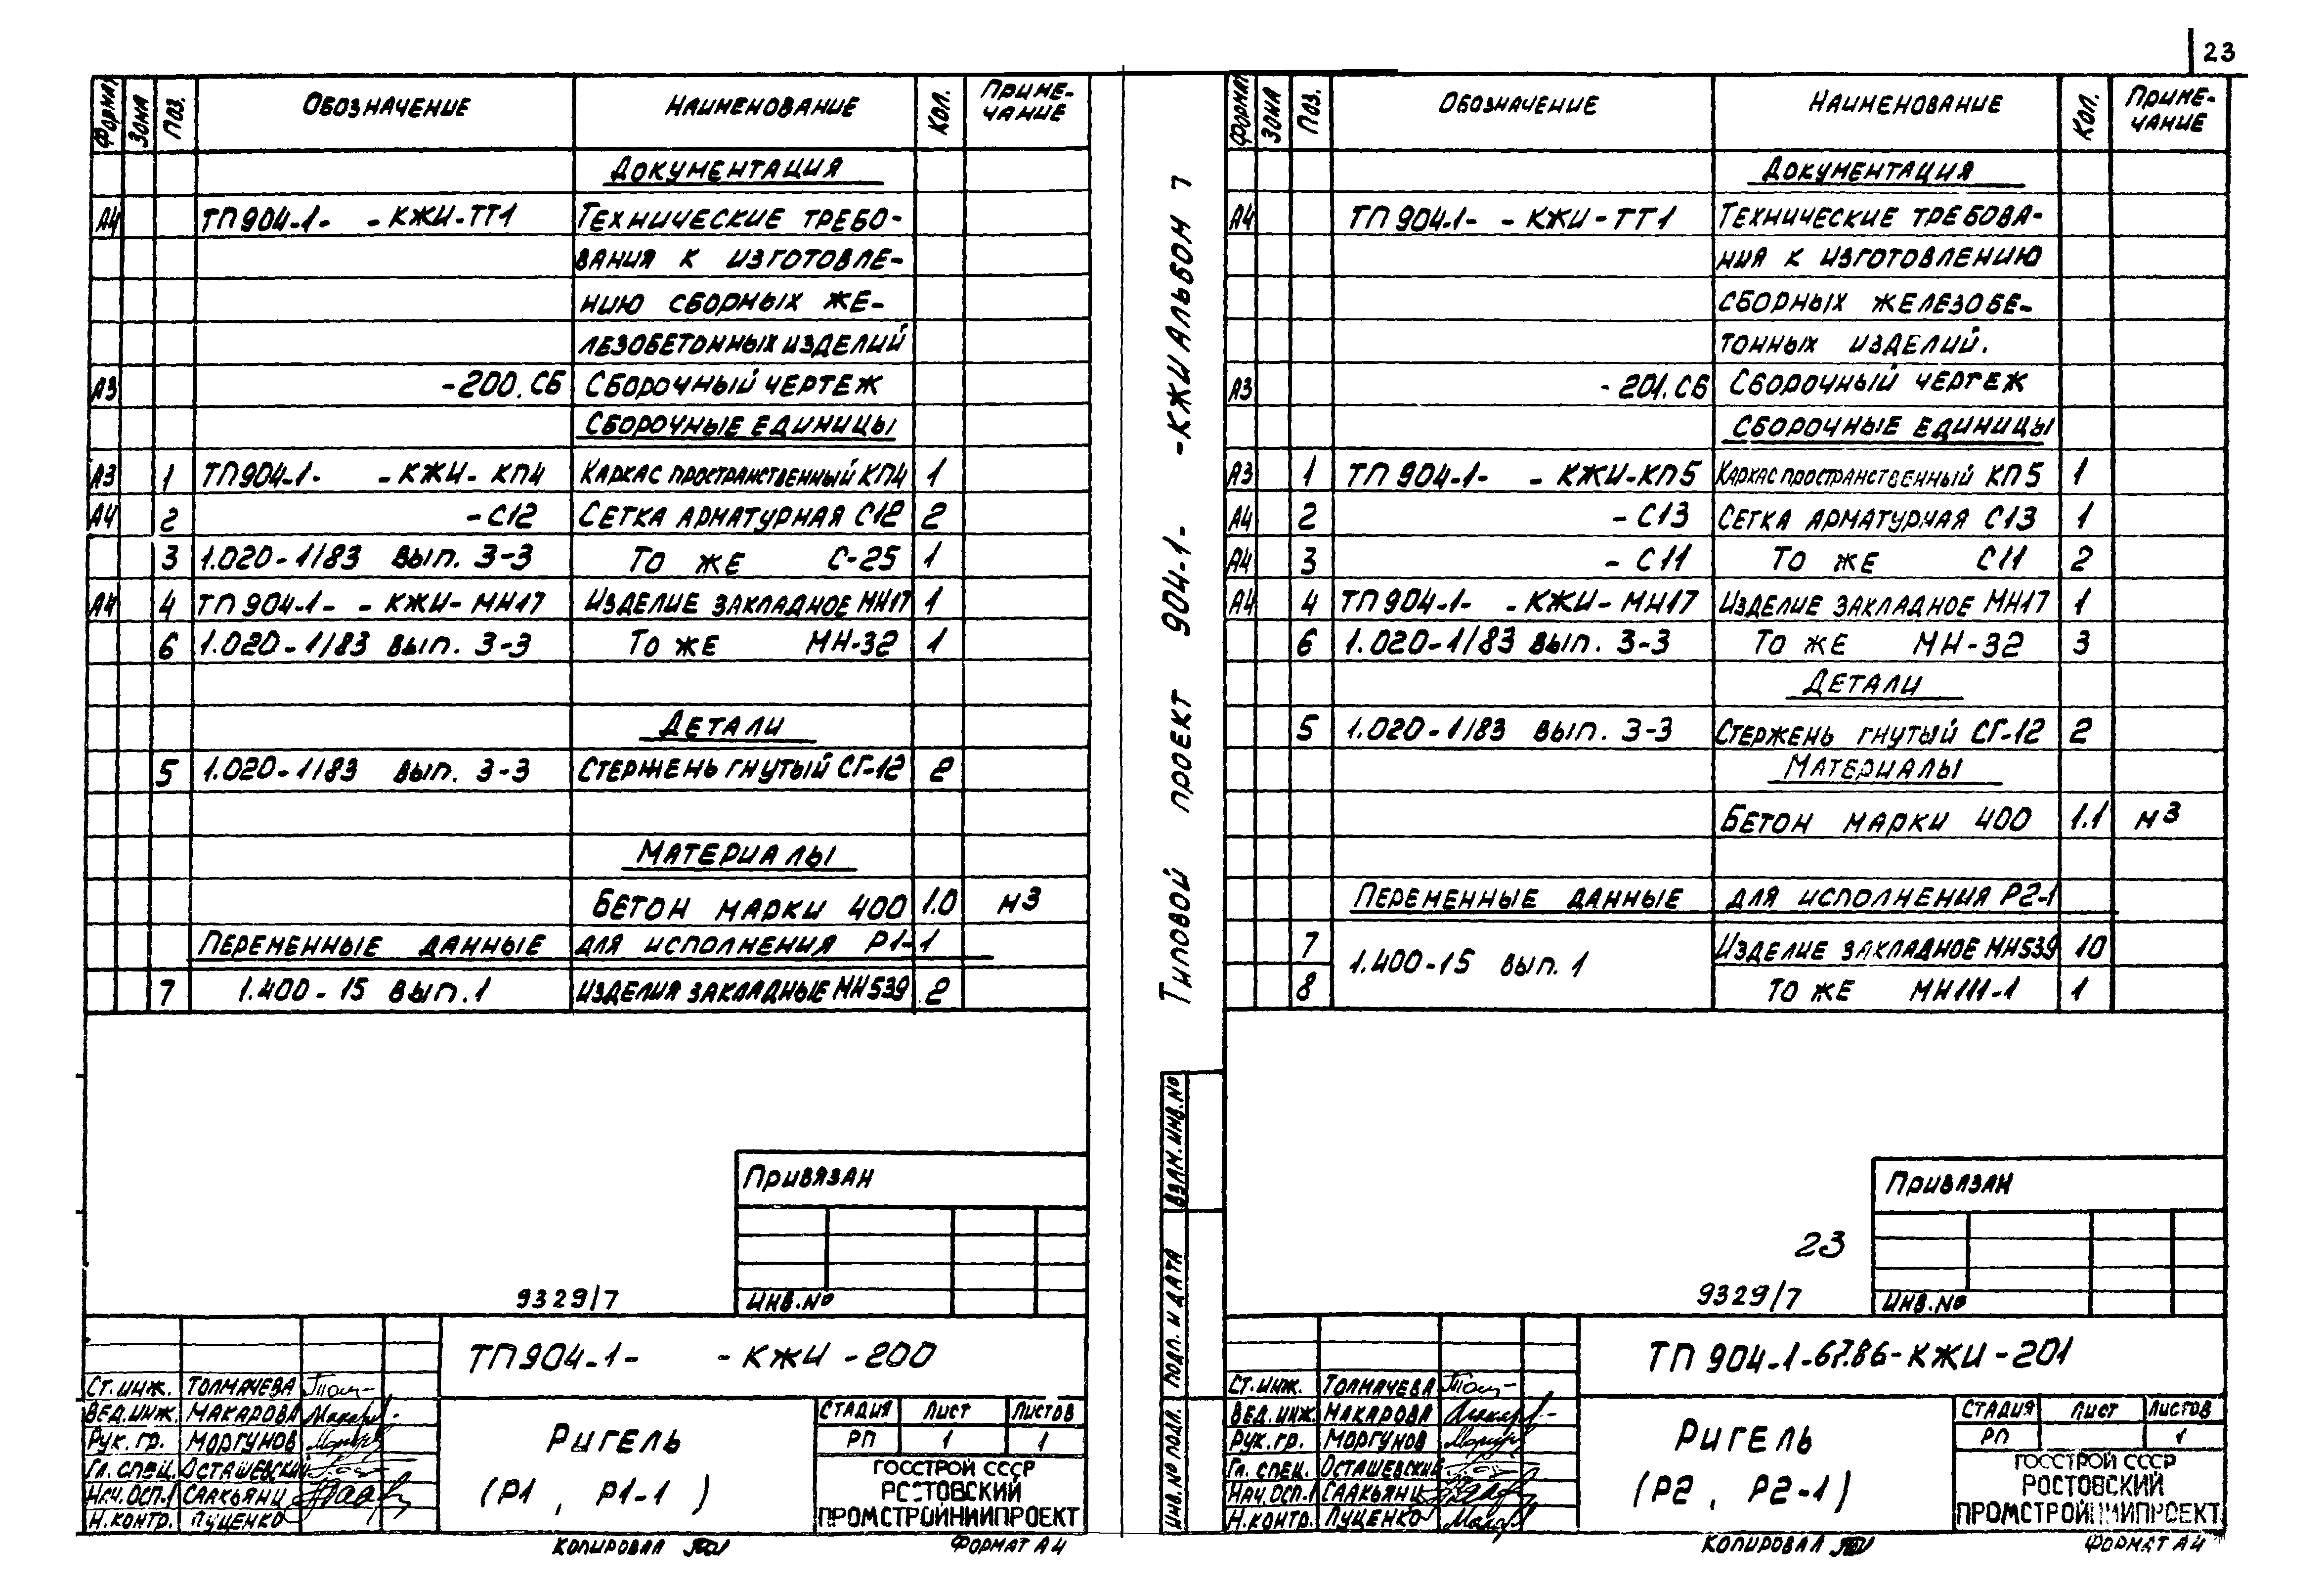 23
Формат Зона Поз. Обозначение Наименование Кол. Приме-
чание
Документация
А4 ТП904-1- -КЖИ-ТТ1 Технические требо-
вания к изготовле-
нию сборных же-
лезобетонных изделий
А3 -200.СБ Сборочный чертеж
Сборочные единицы
А3 1 ТП904-1- -КЖИ-КП4 Каркас пространственный КП4 1
А4 2 -С12 Сетка арматурная С12 2
3 1.020-1/83 вып. 3-3 То же С-25 1
А4 4 ТП904-1- -КЖИ-МН17 Изделие закладное МН17 1
6 1.020-1/83 вып. 3-3 То же МН-32 1
Детали
5 1.020-1/83 вып. 3-3 Стержень гнутый СГ-12 2
Материалы
Бетон марки 400 1.0 м3
Переменные данные для исполнения Р1-1
7 1.400-15 вып.1 Изделия закладные МН539 2
Привязан
9329/7 Инв.№
ТП904-1- -КЖИ-200
Ст.инж. Толмачева
Вед.инж. Макарова
Рук.гр. Моргунов
Гл.спец. Осташевский
Нач.осп.1 Саакьянц
Н.контр. Луценко
Ригель
(Р1, Р1-1)
Стадия Лист Листов
РП 1 1
ГОССТРОЙ СССР
РОСТОВСКИЙ
ПРОМСТРОЙНИИПРОЕКТ
Копировал Формат А4
Типовой проект 904-1- -КЖИ Альбом 7
Взам.инв.№
Подп. и дата
Инв.№ подл.
Формат Зона Поз. Обозначение Наименование Кол. Приме-
чание
Документация
А4 ТП904-1- -КЖИ-ТТ1 Технические требова-
ния к изготовлению
сборных железобе-
тонных изделий.
А3 -201.СБ Сборочный чертеж
Сборочные единицы
А3 1 ТП904-1- -КЖИ-КП5 Каркас пространственный КП5 1
А4 2 -С13 Сетка арматурная С13 1
А4 3 -С11 То же С11 2
А4 4 ТП904-1- -КЖИ-МН17 Изделие закладное МН17 1
6 1.020-1/83 вып. 3-3 То же МН-32 3
Детали
5 1.020-1/83 вып. 3-3 Стержень гнутый СГ-12 2
Материалы
Бетон марки 400 1.1 м3
Переменные данные для исполнения Р2-1
7 1.400-15 вып.1 Изделие закладное МН539 10
8 То же МН111-1 1
Привязан
23
9329/7 Инв.№
ТП904-1-67.86-КЖИ-201
Ст.инж. Толмачева
Вед.инж. Макарова
Рук.гр. Моргунов
Гл.спец. Осташевский
Нач.осп.1 Саакьянц
Н.контр. Луценко
Ригель
(Р2, Р2-1)
Стадия Лист Листов
РП 1
ГОССТРОЙ СССР
РОСТОВСКИЙ
ПРОМСТРОЙНИИПРОЕКТ
Копировал Формат А4